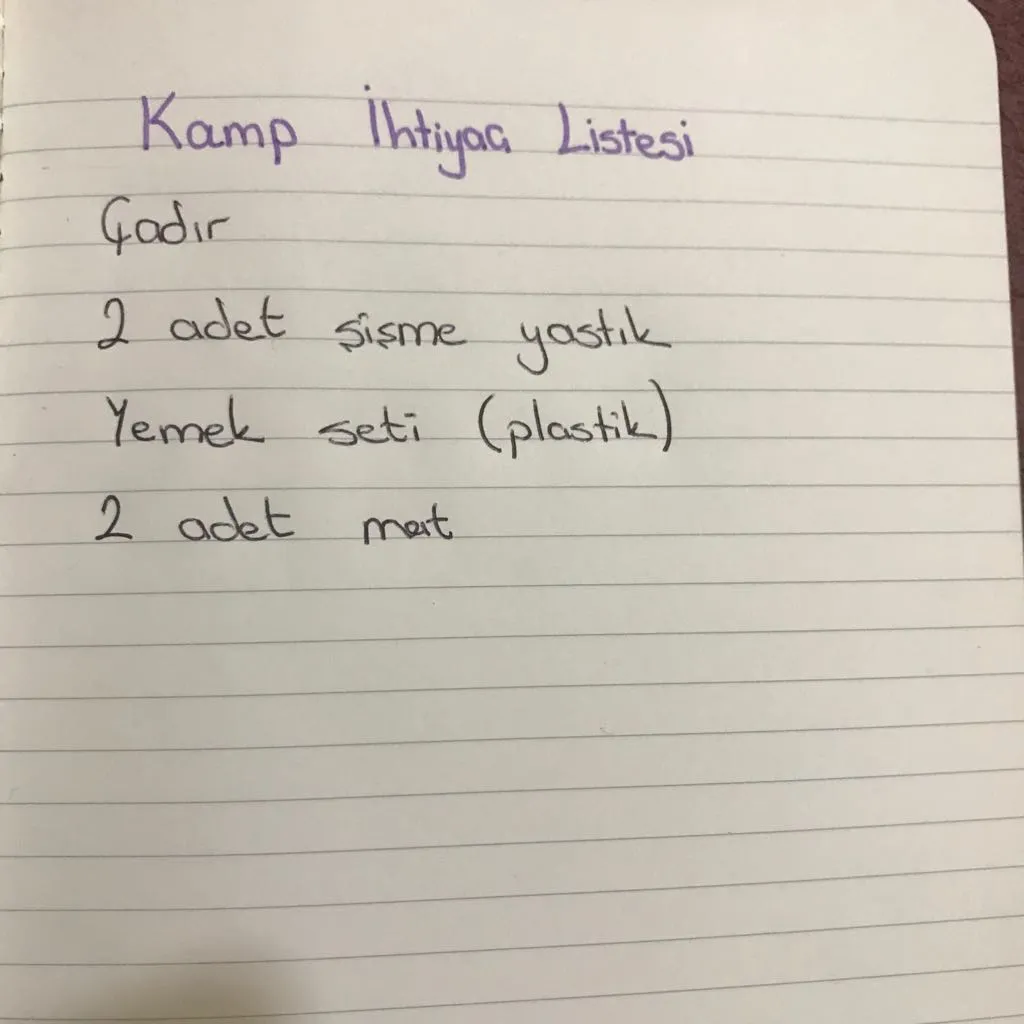 Kamp İhtiyaç Listesi
Çadır
2 adet şişme yastık
Yemek seti (plastik)
2 adet mat